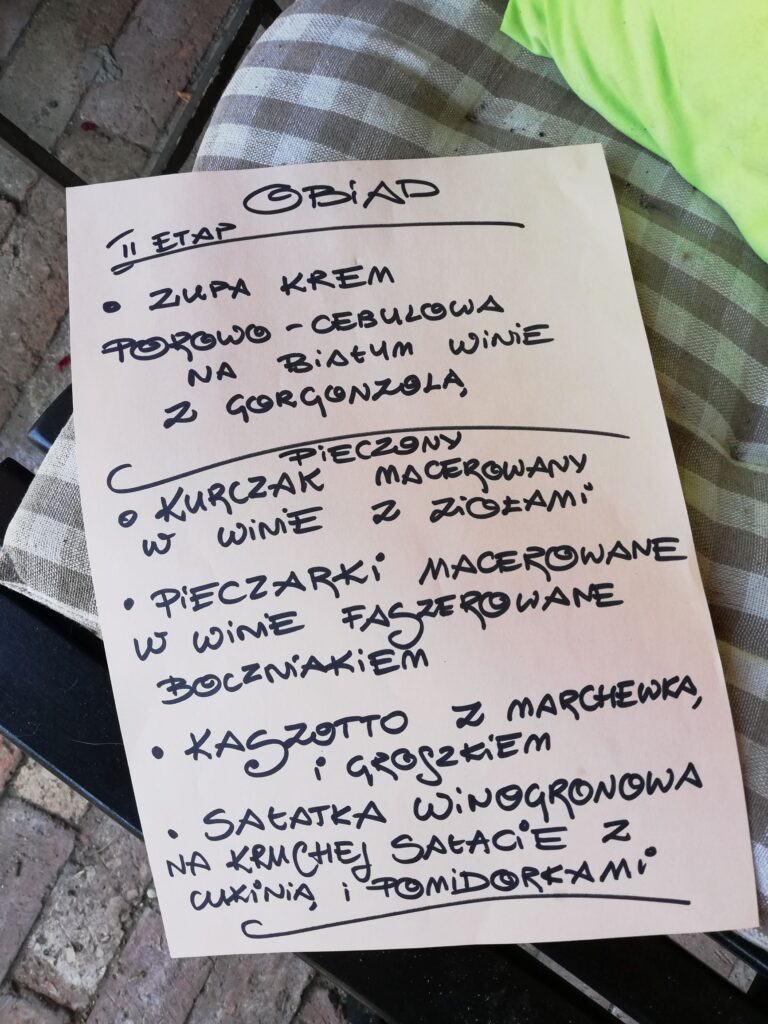 OBIAD
II ETAP
• ZUPA KREM
POROWO-CEBULOWA
NA BIAŁYM WINIE
Z GORGONZOLĄ
PIECZONY
• KURCZAK MACEROWANY
W WINIE Z ZIOŁAMI
• PIECZARKI MACEROWANE
W WINIE FASZEROWANE
BOCZNIAKIEM
• KASZOTTO Z MARCHEWKĄ
I GROSZKIEM
• SAŁATKA WINOGRONOWA
NA KRUCHEJ SAŁACIE Z
CUKINIĄ I POMIDORKAMI